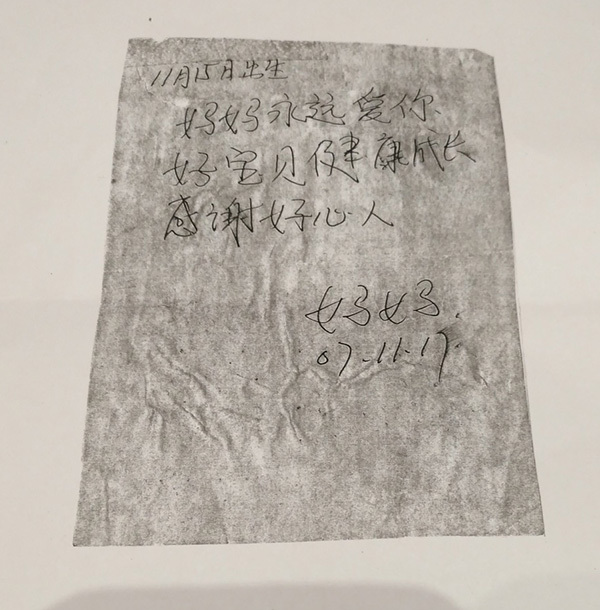 11月15月出生
妈妈永远爱你
好宝贝健康成长
感谢好心人
妈妈.
07.11.17.